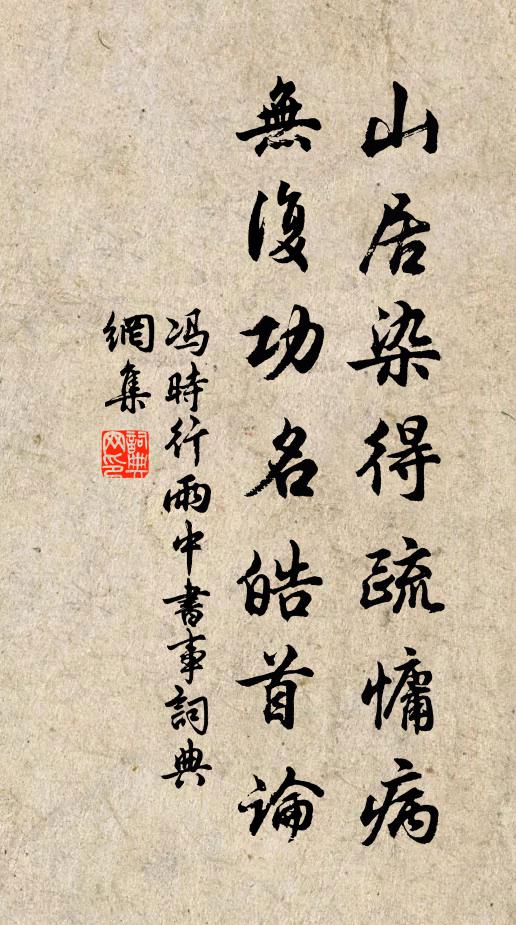 山居染得疏慵病
無復功名皓首論
冯時行雨中書事詞典
網集
詞典
网印